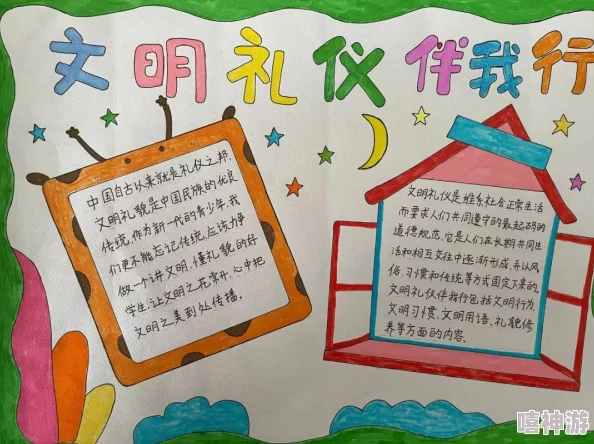 文明礼仪伴我行
中国自古以来就是礼仪之邦,
文明礼貌是中国民族的优良
传统,作为新一代的青少年,我
们更不能忘记传统,应该力争
做一个讲文明,懂礼貌的好
学生,让文明之花常开,心中把
文明之美到处传播.
文明礼仪是维系社会正常生活
而要求人们共同遵守的最起码的
道德规范,它是人们在长期共同生
活和相互交往中逐渐形成,并以风
俗、习惯和传统等方式固定下来的。
文明礼仪伴我行包括文明行为,
文明习惯,文明用语,礼貌修
养等方面的内容.
嘻神游